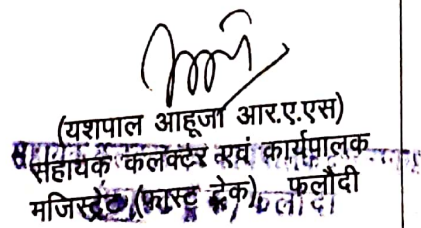 (यशपाल आहूजा आर.ए.एस)
सहायक कलक्टर एवं कार्यपालक
मजिस्ट्रेट (फास्ट ट्रेक), फलौदी